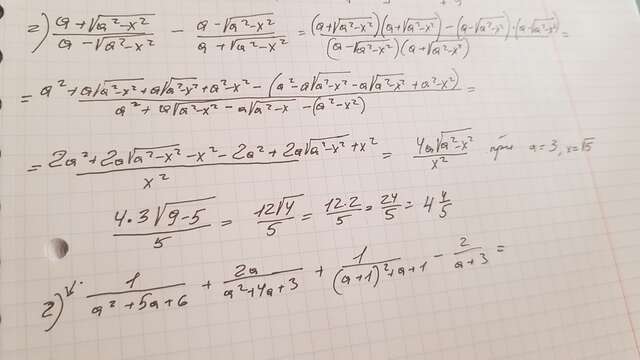 2) \frac{a+\sqrt{a^2-x^2}}{a-\sqrt{a^2-x^2}} - \frac{a-\sqrt{a^2-x^2}}{a+\sqrt{a^2-x^2}} = \frac{(a+\sqrt{a^2-x^2})(a+\sqrt{a^2-x^2})-(a-\sqrt{a^2-x^2})\cdot(a-\sqrt{a^2-x^2})}{(a-\sqrt{a^2-x^2})(a+\sqrt{a^2-x^2})} =
= \frac{a^2+a\sqrt{a^2-x^2}+a\sqrt{a^2-x^2}+a^2-x^2-(a^2-a\sqrt{a^2-x^2}-a\sqrt{a^2-x^2}+a^2-x^2)}{a^2+a\sqrt{a^2-x^2}-a\sqrt{a^2-x^2}-(a^2-x^2)} =
= \frac{2a^2+2a\sqrt{a^2-x^2}-x^2-2a^2+2a\sqrt{a^2-x^2}+x^2}{x^2} = \frac{4a\sqrt{a^2-x^2}}{x^2} при a=3, x=\sqrt{5}
\frac{4\cdot3\sqrt{9-5}}{5} = \frac{12\sqrt{4}}{5} = \frac{12\cdot2}{5} = \frac{24}{5} = 4\frac{4}{5}
2) \frac{1}{a^2+5a+6} + \frac{2a}{a^2+4a+3} + \frac{1}{(a+1)^2+a+1} - \frac{2}{a+3} =